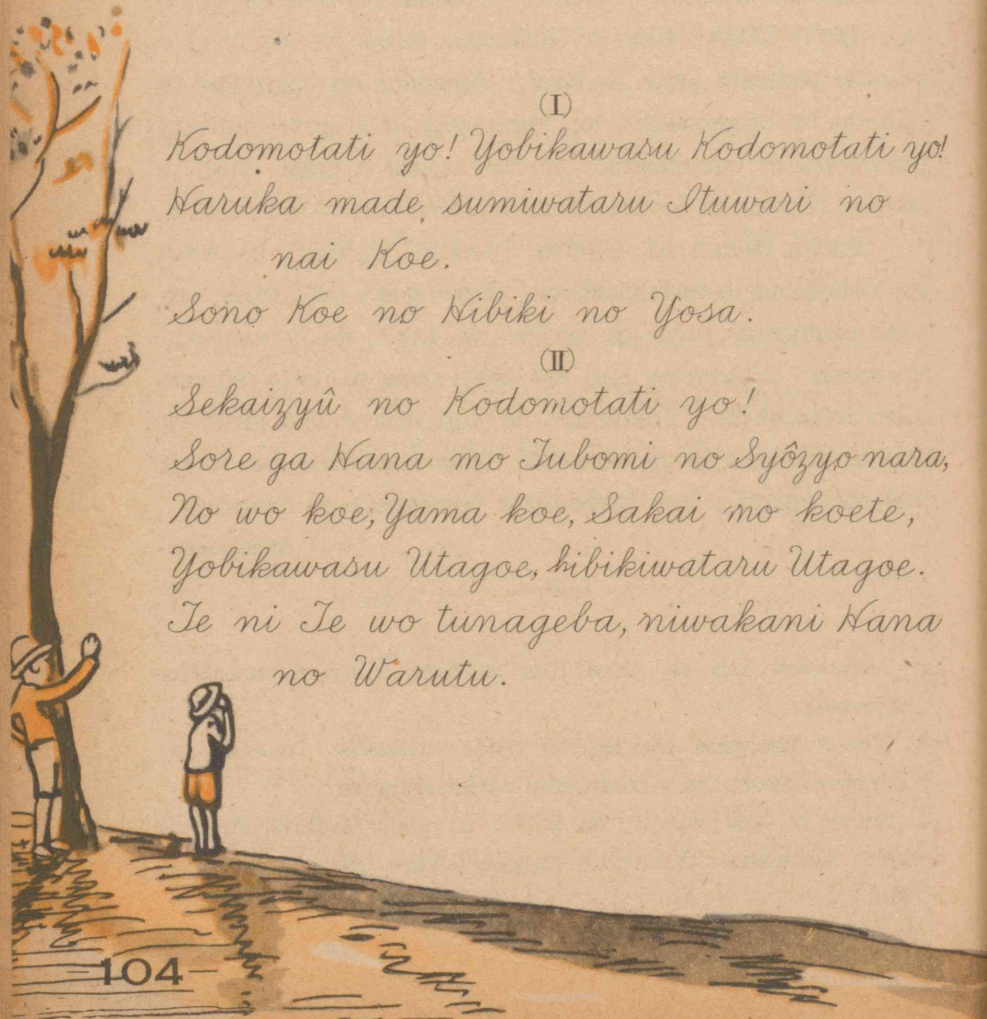 (I)
Kodomotati yo! Yobikawasu Kodomotati yo!
Haruka made sumiwataru Ituwari no
nai Koe.
Sono Koe no Hibiki no Yosa.
(II)
Sekaizyû no Kodomotati yo!
Sore ga Hana mo Tubomi no Syôzyo nara,
No wo koe, Yama koe, Sakai mo koete,
Yobikawasu Utagoe, hibikiwataru Utagoe.
Te ni Te wo tunageba, niwakani Hana
no Warutu.
-104-